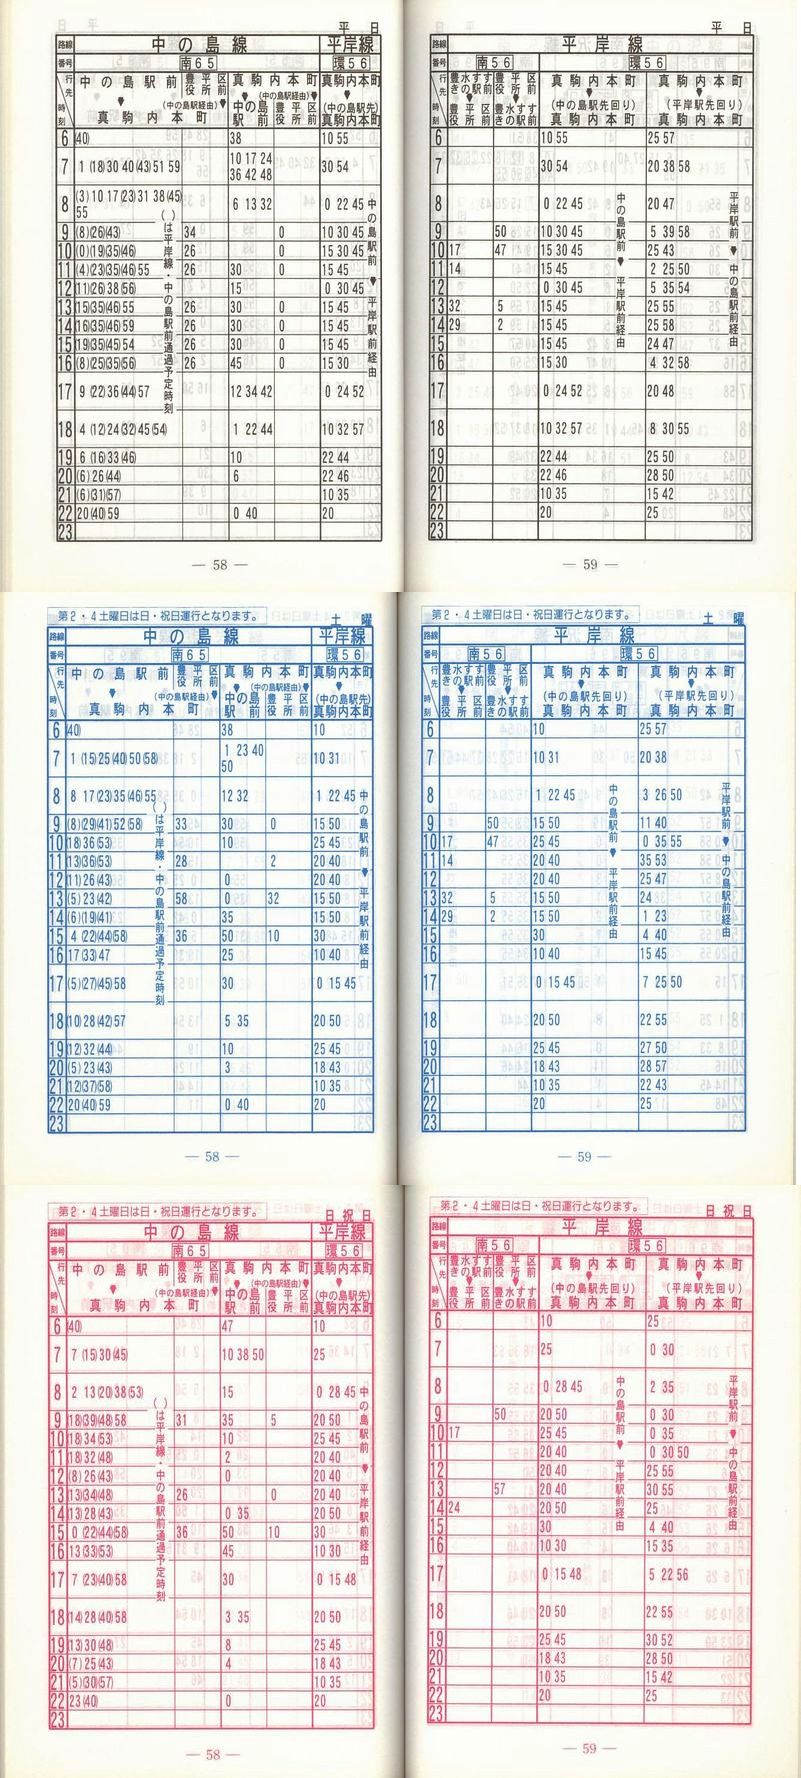 平　日
路線 中の島線 平岸線
番号 南65 環56
行先 時刻 中の島駅前 ▼ (中の島駅経由) 真駒内本町 豊平区役所前 真駒内本町 (中の島駅経由)▼ 中の島駅前 豊平区役所前 真駒内本町 ▼ (中の島駅先) 真駒内本町
6 (40) 38 10 55
7 1 (18)30 40(43)51 59 10 17 24 36 42 48 30 54
8 (3)10 17(23)31 38(45) 55 6 13 32 0 22 45
9 (8)(26)(43) 34 0 10 30 45
10 (0)(19)(35)(46) 26 0 15 30 45
11 (4)(23)(35)(46)55 26 30 0 15 45
12 (11)(26)(38)(56) 15 0 30 45
13 15(35)(46)55 26 30 0 15 45
14 16(35)(46)59 26 30 0 15 45
15 (19)(35)(45)54 26 30 0 15 45
16 (8)(25)(35)(56) 26 45 0 15 30
17 9 (22)(36)(44)57 12 34 42 0 24 52
18 4 (12)(24)(32)45(54) 1 22 44 10 32 57
19 6 (16)(33)(46) 10 22 44
20 (6)(26)(44) 6 22 46
21 (6)(31)(57) 10 35
22 20(40)59 0 40 20
23
( )は平岸線・中の島駅前通過予定時刻
中の島駅前▼平岸駅前経由
— 58 —
平　日
路線 平岸線
番号 南56 環56
行先 時刻 豊水すすきの駅前 ▼ 豊平区役所前 豊平区役所前 ▼ 豊水すすきの駅前 真駒内本町 ▼ (中の島駅先回り) 真駒内本町 真駒内本町 ▼ (平岸駅先回り) 真駒内本町
6 10 55 25 57
7 30 54 20 38 58
8 0 22 45 20 47
9 50 10 30 45 5 39 58
10 17 47 15 30 45 25 43
11 14 15 45 2 25 50
12 0 30 45 5 35 54
13 32 5 15 45 25 55
14 29 2 15 45 25 58
15 15 45 24 47
16 15 30 4 32 58
17 0 24 52 20 48
18 10 32 57 8 30 55
19 22 44 25 50
20 22 46 28 50
21 10 35 15 42
22 20 25
23
中の島駅前▼平岸駅前経由
平岸駅前▼中の島駅前経由
— 59 —
第2・4土曜日は日・祝日運行となります。
土　曜
路線 中の島線 平岸線
番号 南65 環56
行先 時刻 中の島駅前 ▼ (中の島駅経由) 真駒内本町 豊平区役所前 真駒内本町 (中の島駅経由)▼ 中の島駅前 豊平区役所前 真駒内本町 ▼ (中の島駅先) 真駒内本町
6 (40) 38 10
7 1 (15)25(40)50(58) 1 23 40 50 10 31
8 8 17(23)35(46)55 12 32 1 22 45
9 (8)(29)(41)52(58) 33 30 0 15 50
10 (18)36(53) 10 25 45
11 (13)36(53) 28 2 20 40
12 (11)26(43) 0 20 40
13 (5)23(42) 58 0 32 15 50
14 (6)(19)(41) 35 15 50
15 4 (22)(44)58) 36 50 10 30
16 17(33)47 25 10 40
17 (5)(27)(45)58 30 0 15 45
18 (10)28(42)57 5 35 20 50
19 (12)32(44) 10 25 45
20 (5)23(43) 3 18 43
21 (12)(37)(58) 10 35
22 20(40)59 0 40 20
23
( )は平岸線・中の島駅前通過予定時刻
中の島駅前▼平岸駅前経由
— 58 —
第2・4土曜日は日・祝日運行となります。
土　曜
路線 平岸線
番号 南56 環56
行先 時刻 豊水すすきの駅前 ▼ 豊平区役所前 豊平区役所前 ▼ 豊水すすきの駅前 真駒内本町 ▼ (中の島駅先回り) 真駒内本町 真駒内本町 ▼ (平岸駅先回り) 真駒内本町
6 10 25 57
7 10 31 20 38
8 1 22 45 3 26 50
9 50 15 50 11 40
10 17 47 25 45 0 35 55
11 14 20 40 35 53
12 20 40 25 47
13 32 5 15 50 24
14 29 2 15 50 1 23
15 30 4 40
16 10 40 15 45
17 0 15 45 7 25 50
18 20 50 22 55
19 25 45 27 50
20 18 43 28 57
21 10 35 22 43
22 20 25
23
中の島駅前▼平岸駅前経由
平岸駅前▼中の島駅前経由
— 59 —
第2・4土曜日は日・祝日運行となります。
日　祝　日
路線 中の島線 平岸線
番号 南65 環56
行先 時刻 中の島駅前 ▼ (中の島駅経由) 真駒内本町 豊平区役所前 真駒内本町 (中の島駅経由)▼ 中の島駅前 豊平区役所前 真駒内本町 ▼ (中の島駅先) 真駒内本町
6 (40) 47 10
7 7 (15)30(45) 10 38 50 25
8 2 13(20)38(53) 15 0 28 45
9 18(39)(48)58 31 35 5 20 50
10 (18)34(53) 10 25 45
11 (18)32(48) 2 20 40
12 (8)26(43) 0 20 40
13 (13)(34)(48) 26 0 20 40
14 (13)28(43) 0 35 20 50
15 0 (22)(44)58) 36 50 10 30
16 13(33)(53) 45 10 30
17 7 (23)(40)58 30 0 15 48
18 14(28)(40)58 3 35 20 50
19 (13)30(48) 8 25 45
20 (7)25(43) 4 18 43
21 (5)(30)(57) 10 35
22 23(40) 0 20
23
( )は平岸線・中の島駅前通過予定時刻
中の島駅前▼平岸駅前経由
— 58 —
第2・4土曜日は日・祝日運行となります。
日　祝　日
路線 平岸線
番号 南56 環56
行先 時刻 豊水すすきの駅前 ▼ 豊平区役所前 豊平区役所前 ▼ 豊水すすきの駅前 真駒内本町 ▼ (中の島駅先回り) 真駒内本町 真駒内本町 ▼ (平岸駅先回り) 真駒内本町
6 10 25
7 25 0 30
8 0 28 45 2 35
9 50 20 50 0 30
10 17 25 45 0 35
11 20 40 0 30 50
12 20 40 25 55
13 57 20 40 30 55
14 24 20 50 25
15 30 4 40
16 10 30 15 35
17 0 15 48 5 22 56
18 20 50 22 55
19 25 45 30 52
20 18 43 28 50
21 10 35 15 42
22 20 25
23
中の島駅前▼平岸駅前経由
平岸駅前▼中の島駅前経由
— 59 —